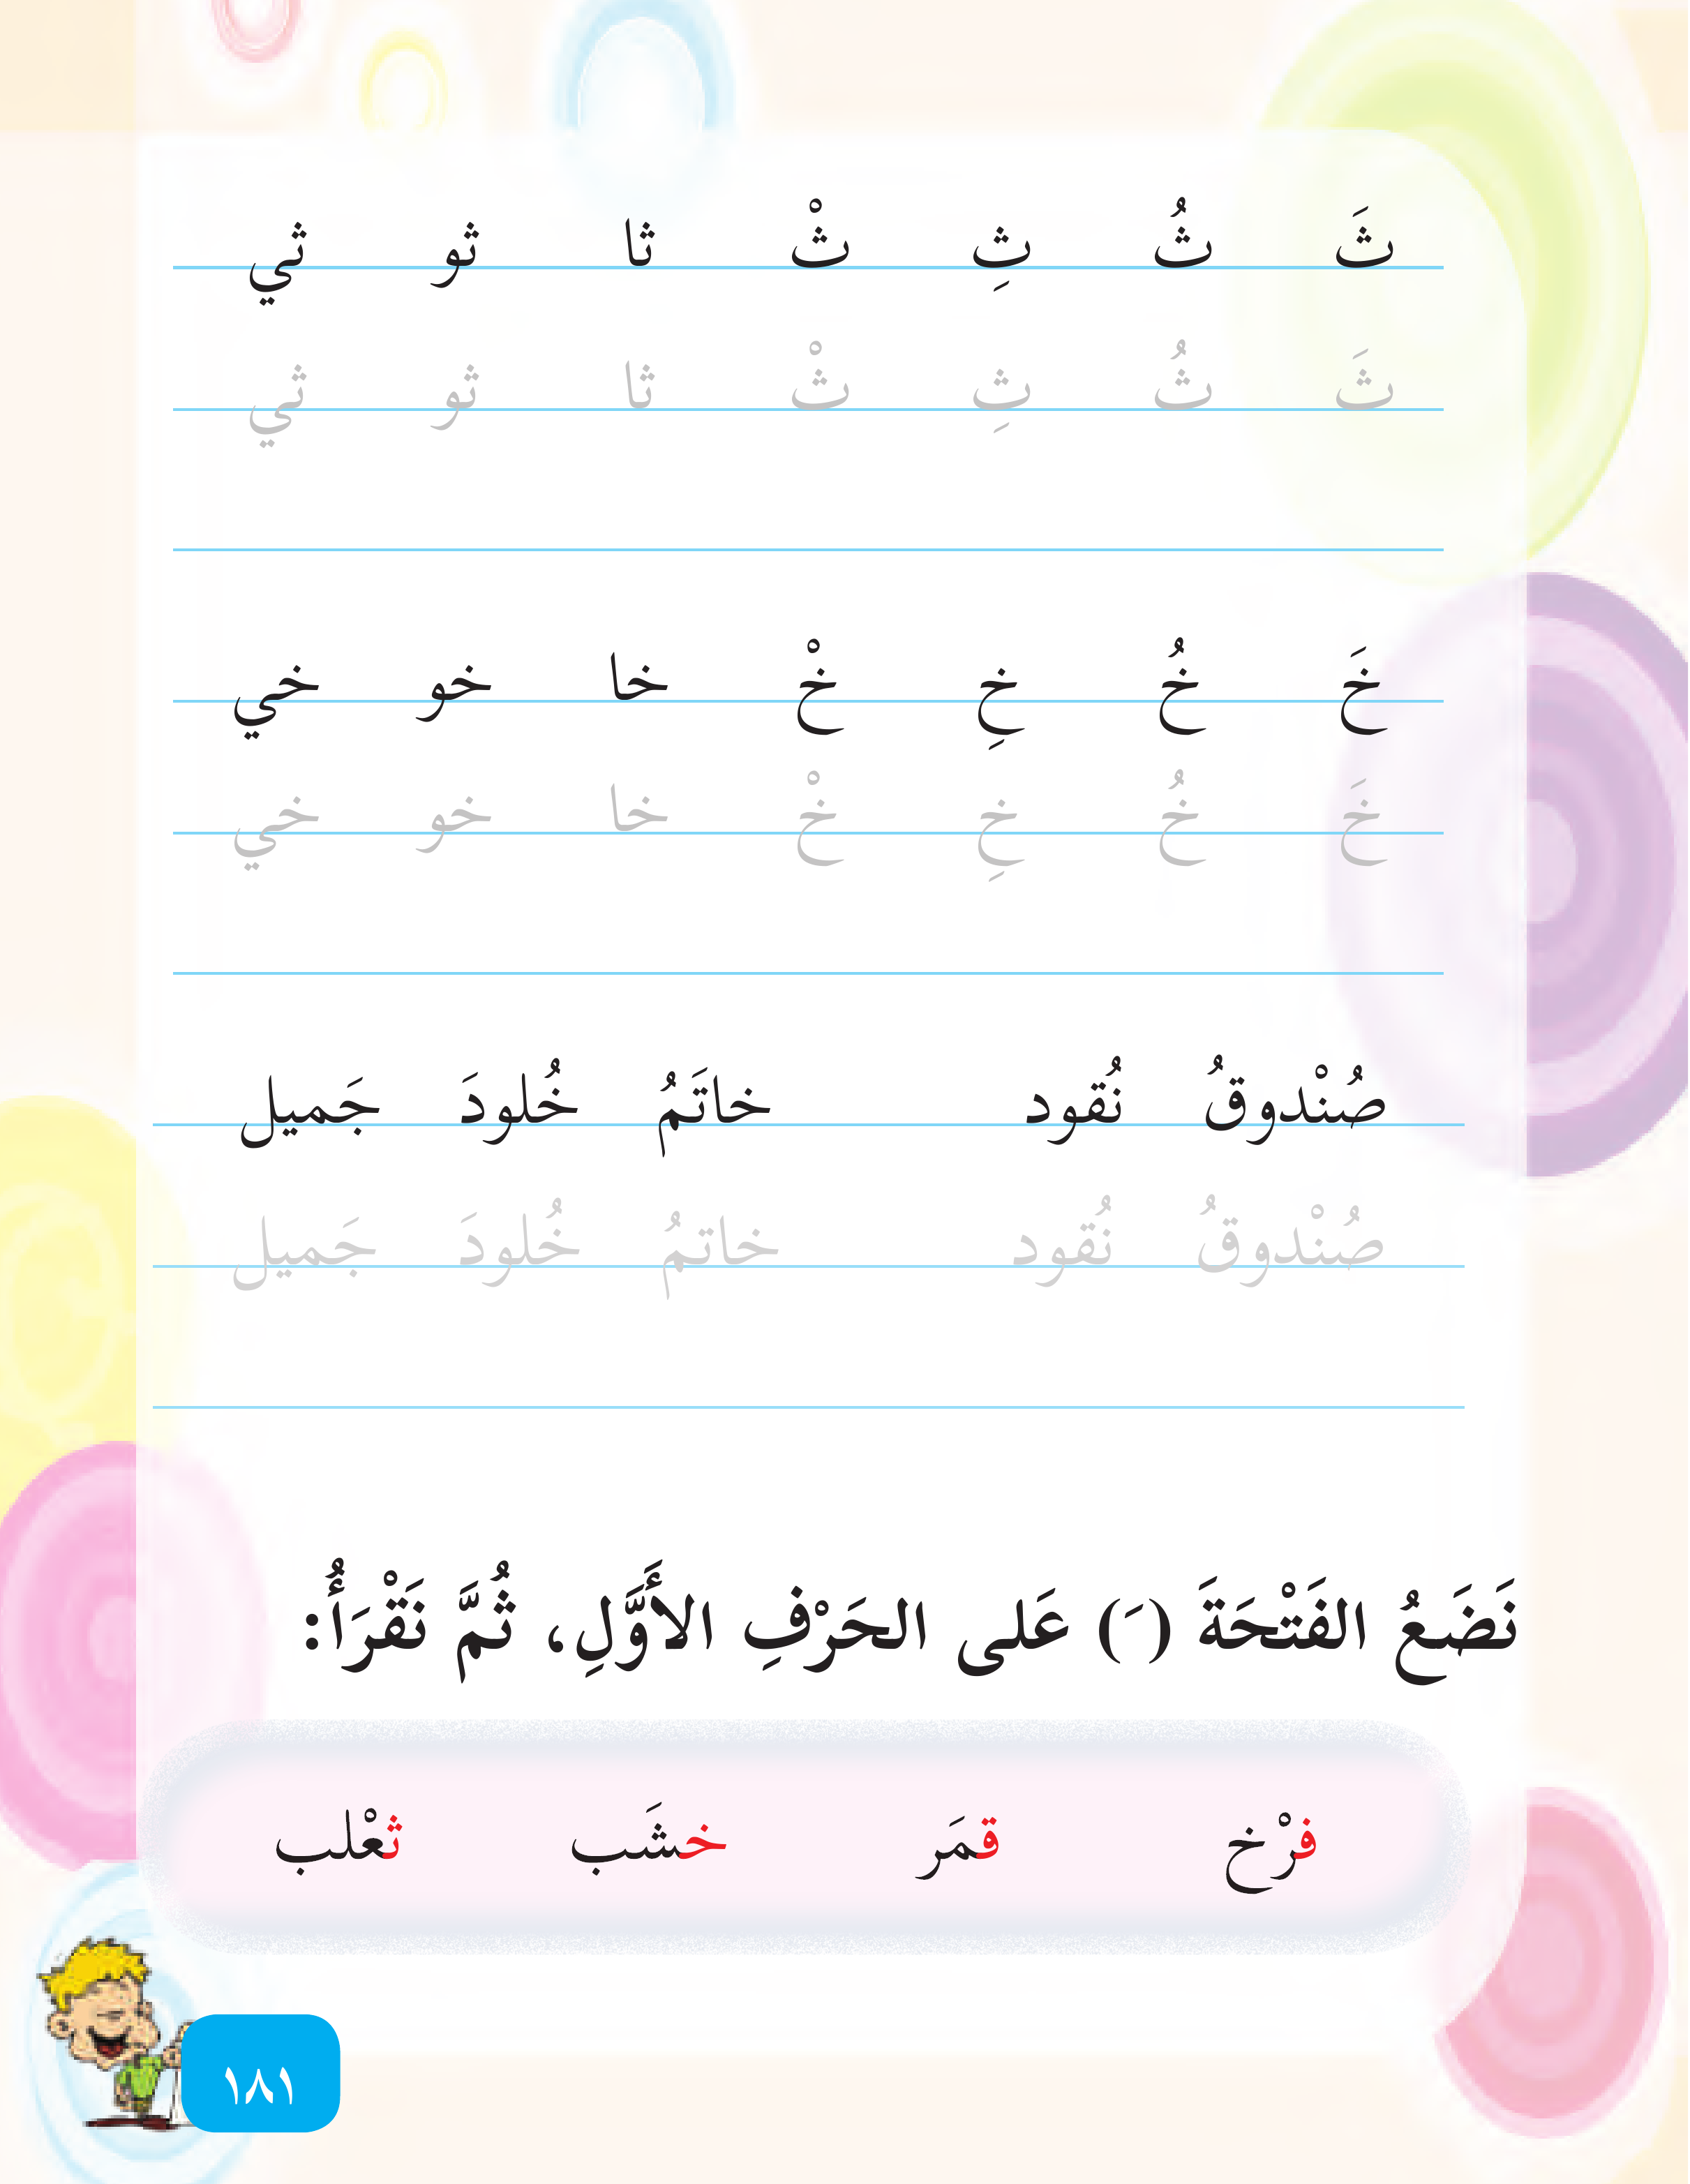 ثَ ثُ ثِ ثْ ثا ثو ثي
ثَ ثُ ثِ ثْ ثا ثو ثي
خَ خُ خِ خْ خا خو خي
خَ خُ خِ خْ خا خو خي
صُنْدوقُ نُقود خاتَمُ خُلودَ جَميل
صُنْدوقُ نُقود خاتمُ خُلودَ جَميل
نَضَعُ الفَتْحَةَ (َ) عَلى الحَرْفِ الأَوَّلِ، ثُمَّ نَقْرَأُ:
فرْخ قمَر خشَب ثعْلب
١٨١